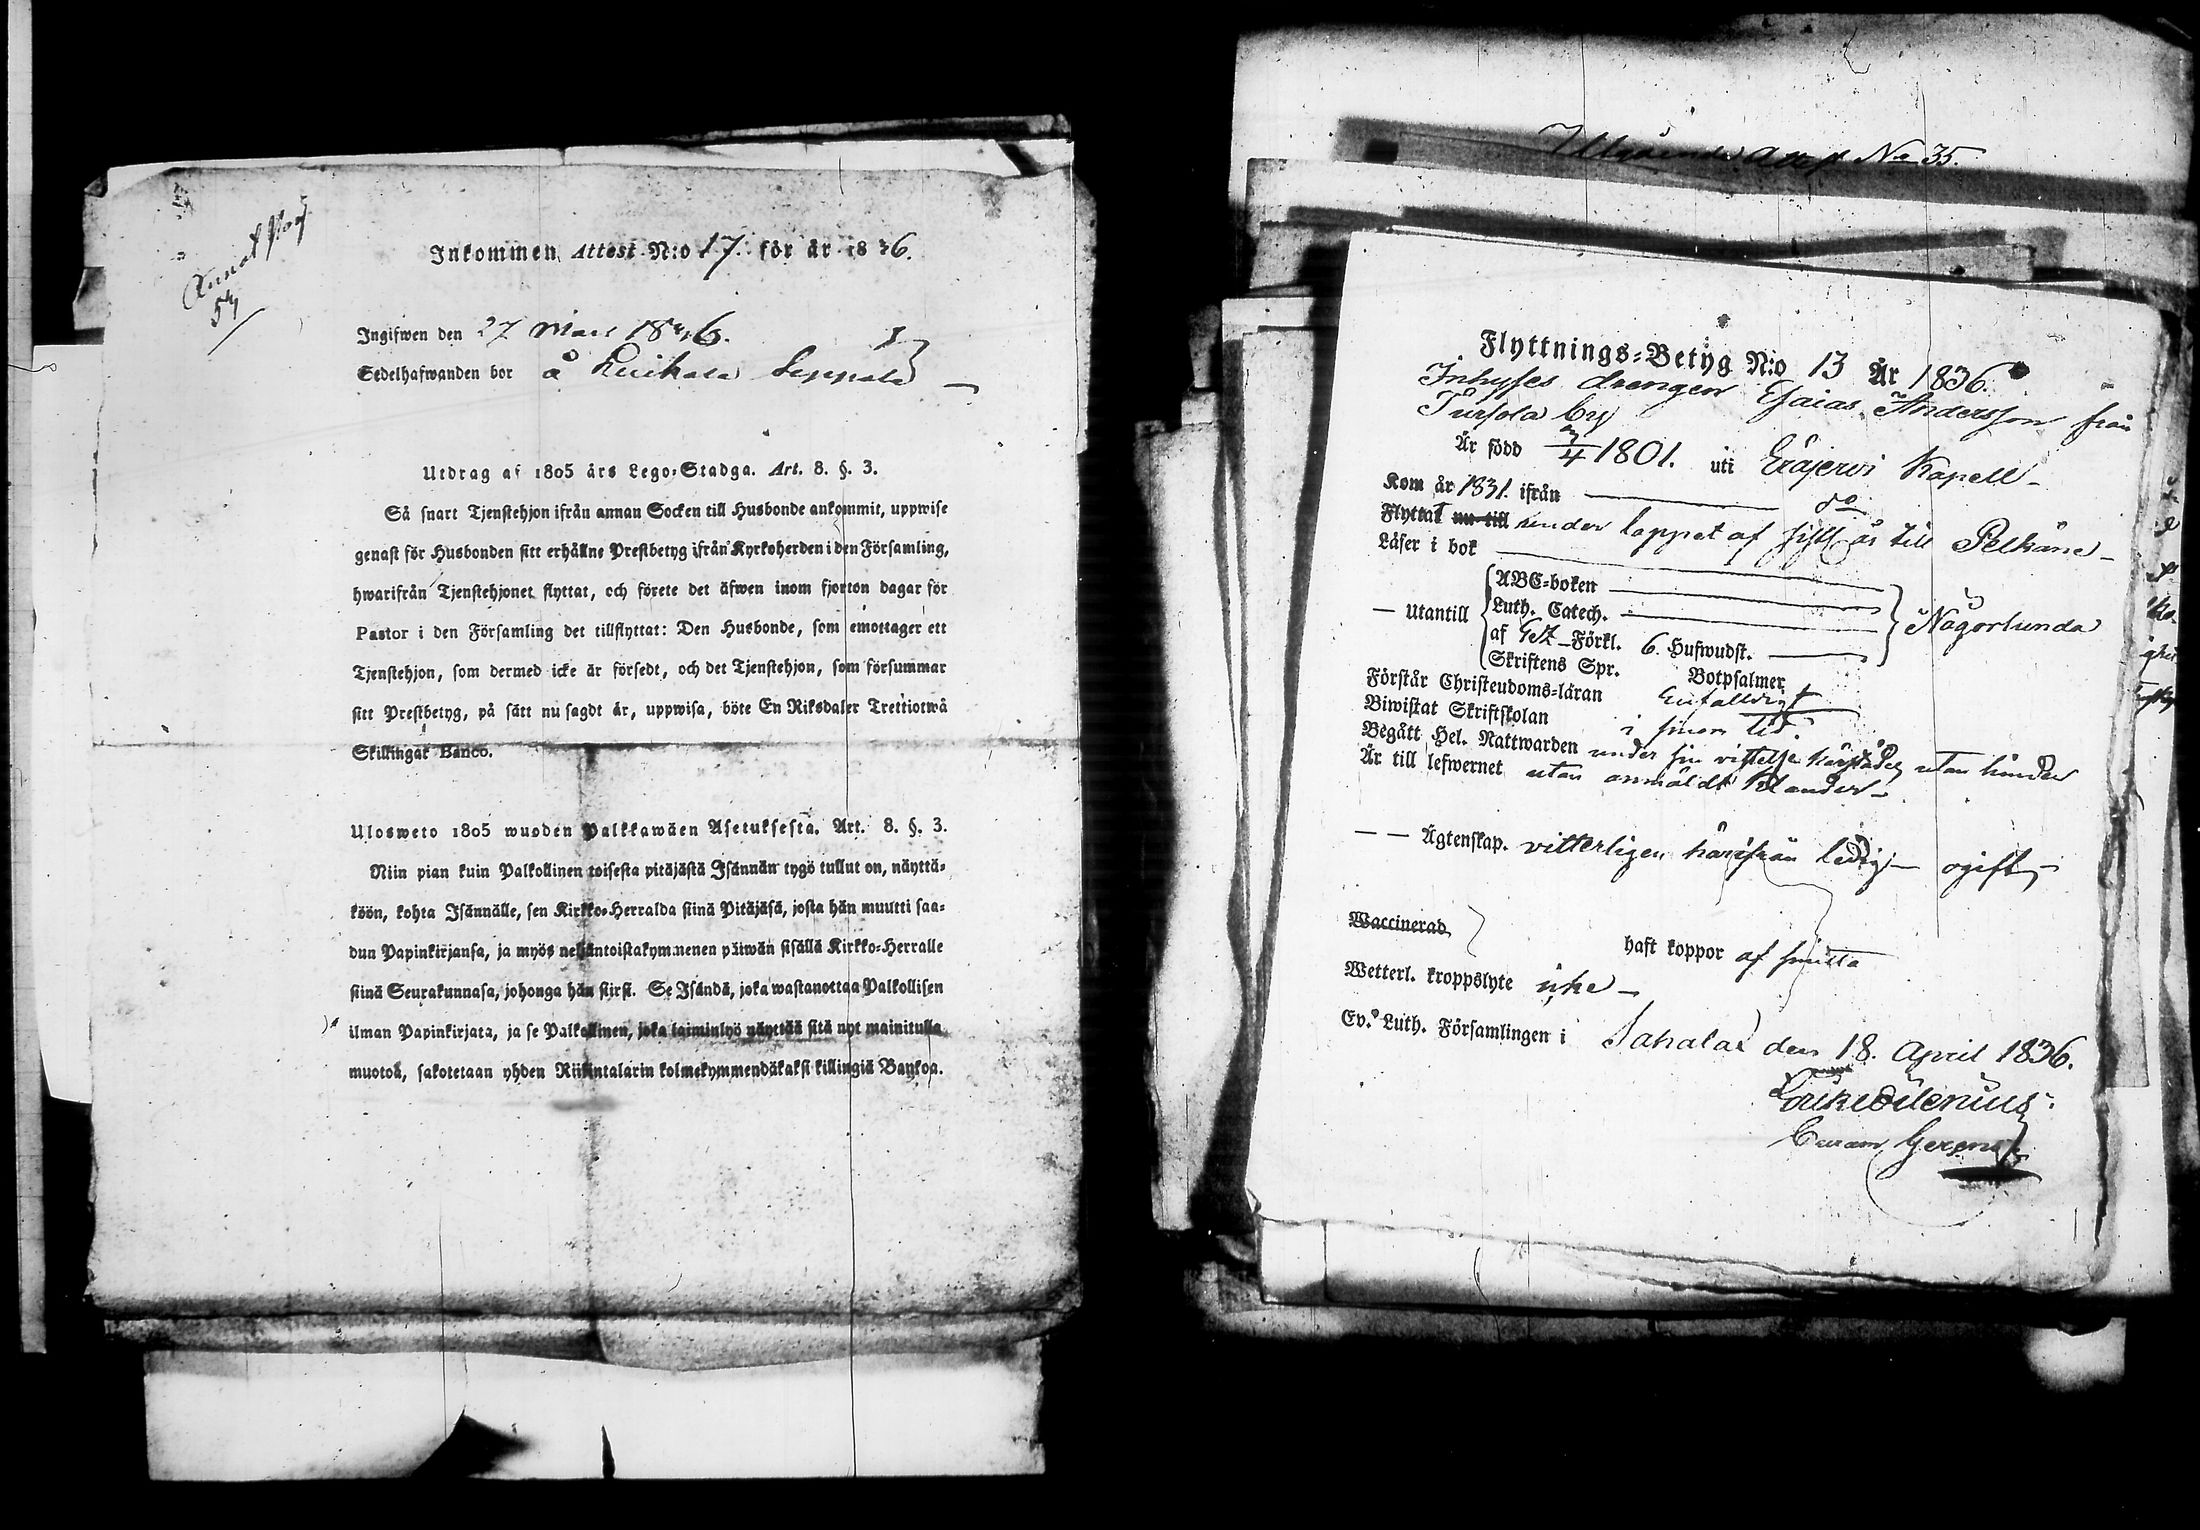 54
Inkommen Attest N:o 17. för år 1836.
Ingifwen den 27 Mars 1836.
Sedelhafwanden bor å Luikala Seppälä
Utdrag af 1805 års Lego-Stadga. Art. 8. §. 3.
Så snart Tjenstehjon ifrån annan Socken till Husbonde ankommit, uppwise
genast för Husbonden sitt erhållne Prestbetyg ifrån Kyrkoherden i den Församling,
hwarifrån Tjenstehjonet flyttat, och förete det äfwen inom fjorton dagar för
Pastor i den Församling det tillflyttat: Den Husbonde, som emottager ett
Tjenstehjon, som dermed icke är försedt, och det Tjenstehjon, som försummar
sitt Prestbetyg, på sätt nu sagdt är, uppwisa, böte En Riksdaler Trettiotwå
Skillingar Banco.
Ulosweto 1805 wuoden Palkkawäen Asetuksesta. Art. 8. §. 3.
Niin pian kuin Palkollinen toisesta pitäjästä Isännän tygö tullut on, näyttä-
köön, kohta Isännälle, sen Kirkko-Herralda siinä Pitäjäsä, josta hän muutti saa-
dun Papinkirjansa, ja myös neljäntoistakymmenen päiwän sisällä Kirkko-Herralle
siinä Seurakunnasa, johonga hän siirsi. Se Isändä, joka wastanottaa Palkollisen
ilman Papinkirjata, ja se Palkollinen, joka laiminlyö näyttää sitä nyt mainitulla
muotoa, sakotetaan yhden Riikintalarin kolmekymmendäkaksi killingiä Bankoa.
Utgående Attest No 35.
Flyttnings-Betyg N:o 13 År 1836.
Inhyses drengen Esaias Andersson från
Tursola by
Är född 3/4 1801. uti Eräjervi Kapell
Kom år 1831. ifrån do
Flyttat nu till under loppet af sistl. år till Pelkäne
Läser i bok
ABC-boken
— Utantill Luth. Catech. Någorlunda
af Förkl. 6. Hufwudst.
Skriftens Spr. Botpsalmer
Förstår Christendoms-läran Enfalldigt
Biwistat Skriftskolan i sinom tid.
Begått Hel. Nattwarden under sin vistelse härstädes utan hinder
Är till lefwernet utan anmäldt klander
— — Ägtenskap. vitterligen härifrån ledig ogift
Waccinerad haft koppor af smitta
Wetterl. kroppslyte icke
Ev. Luth. Församlingen i Sahalax den 18. April 1836.
Curam Gerens